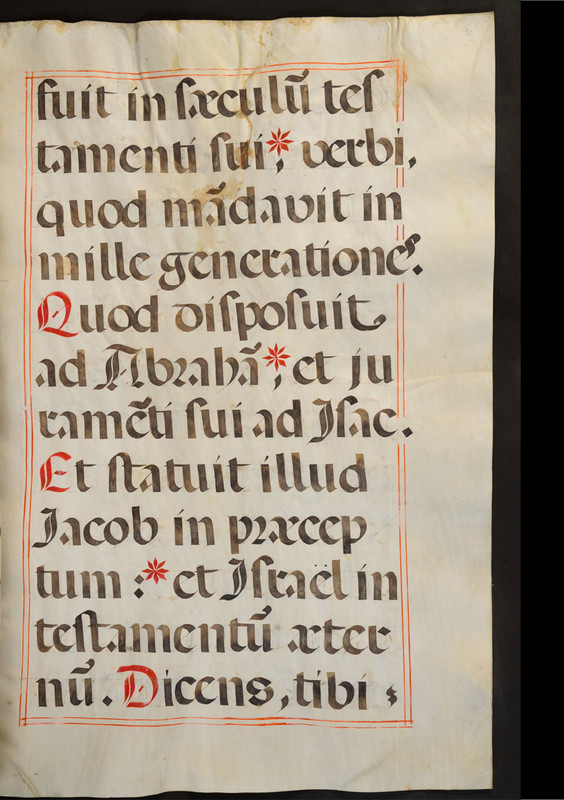 fuit in sæculū tes
tamenti sui*, verbi,
quod mādavit in
mille generationes.
Quod disposuit
ad Abrahā*, et ju
ramēti sui ad Isac.
Et statuit illud
Jacob in præcep
tum :* et Israël in
testamentū æter
nū. Dicens, tibi